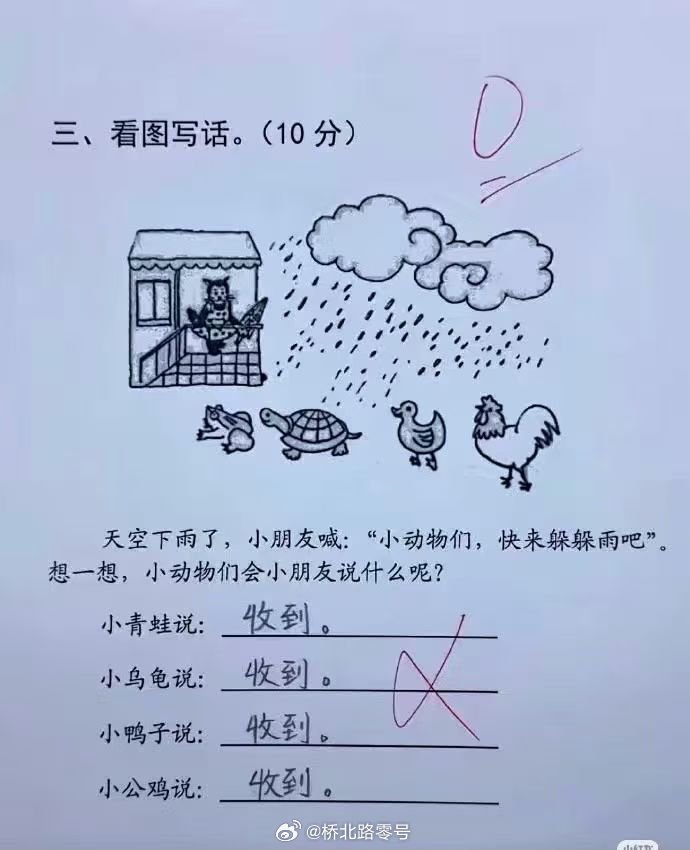 三、看图写话。（10 分）
0
天空下雨了，小朋友喊：“小动物们，快来躲躲雨吧”。
想一想，小动物们会小朋友说什么呢？
小青蛙说：收到。
小乌龟说：收到。
小鸭子说：收到。
小公鸡说：收到。
@桥北路零号
小红书